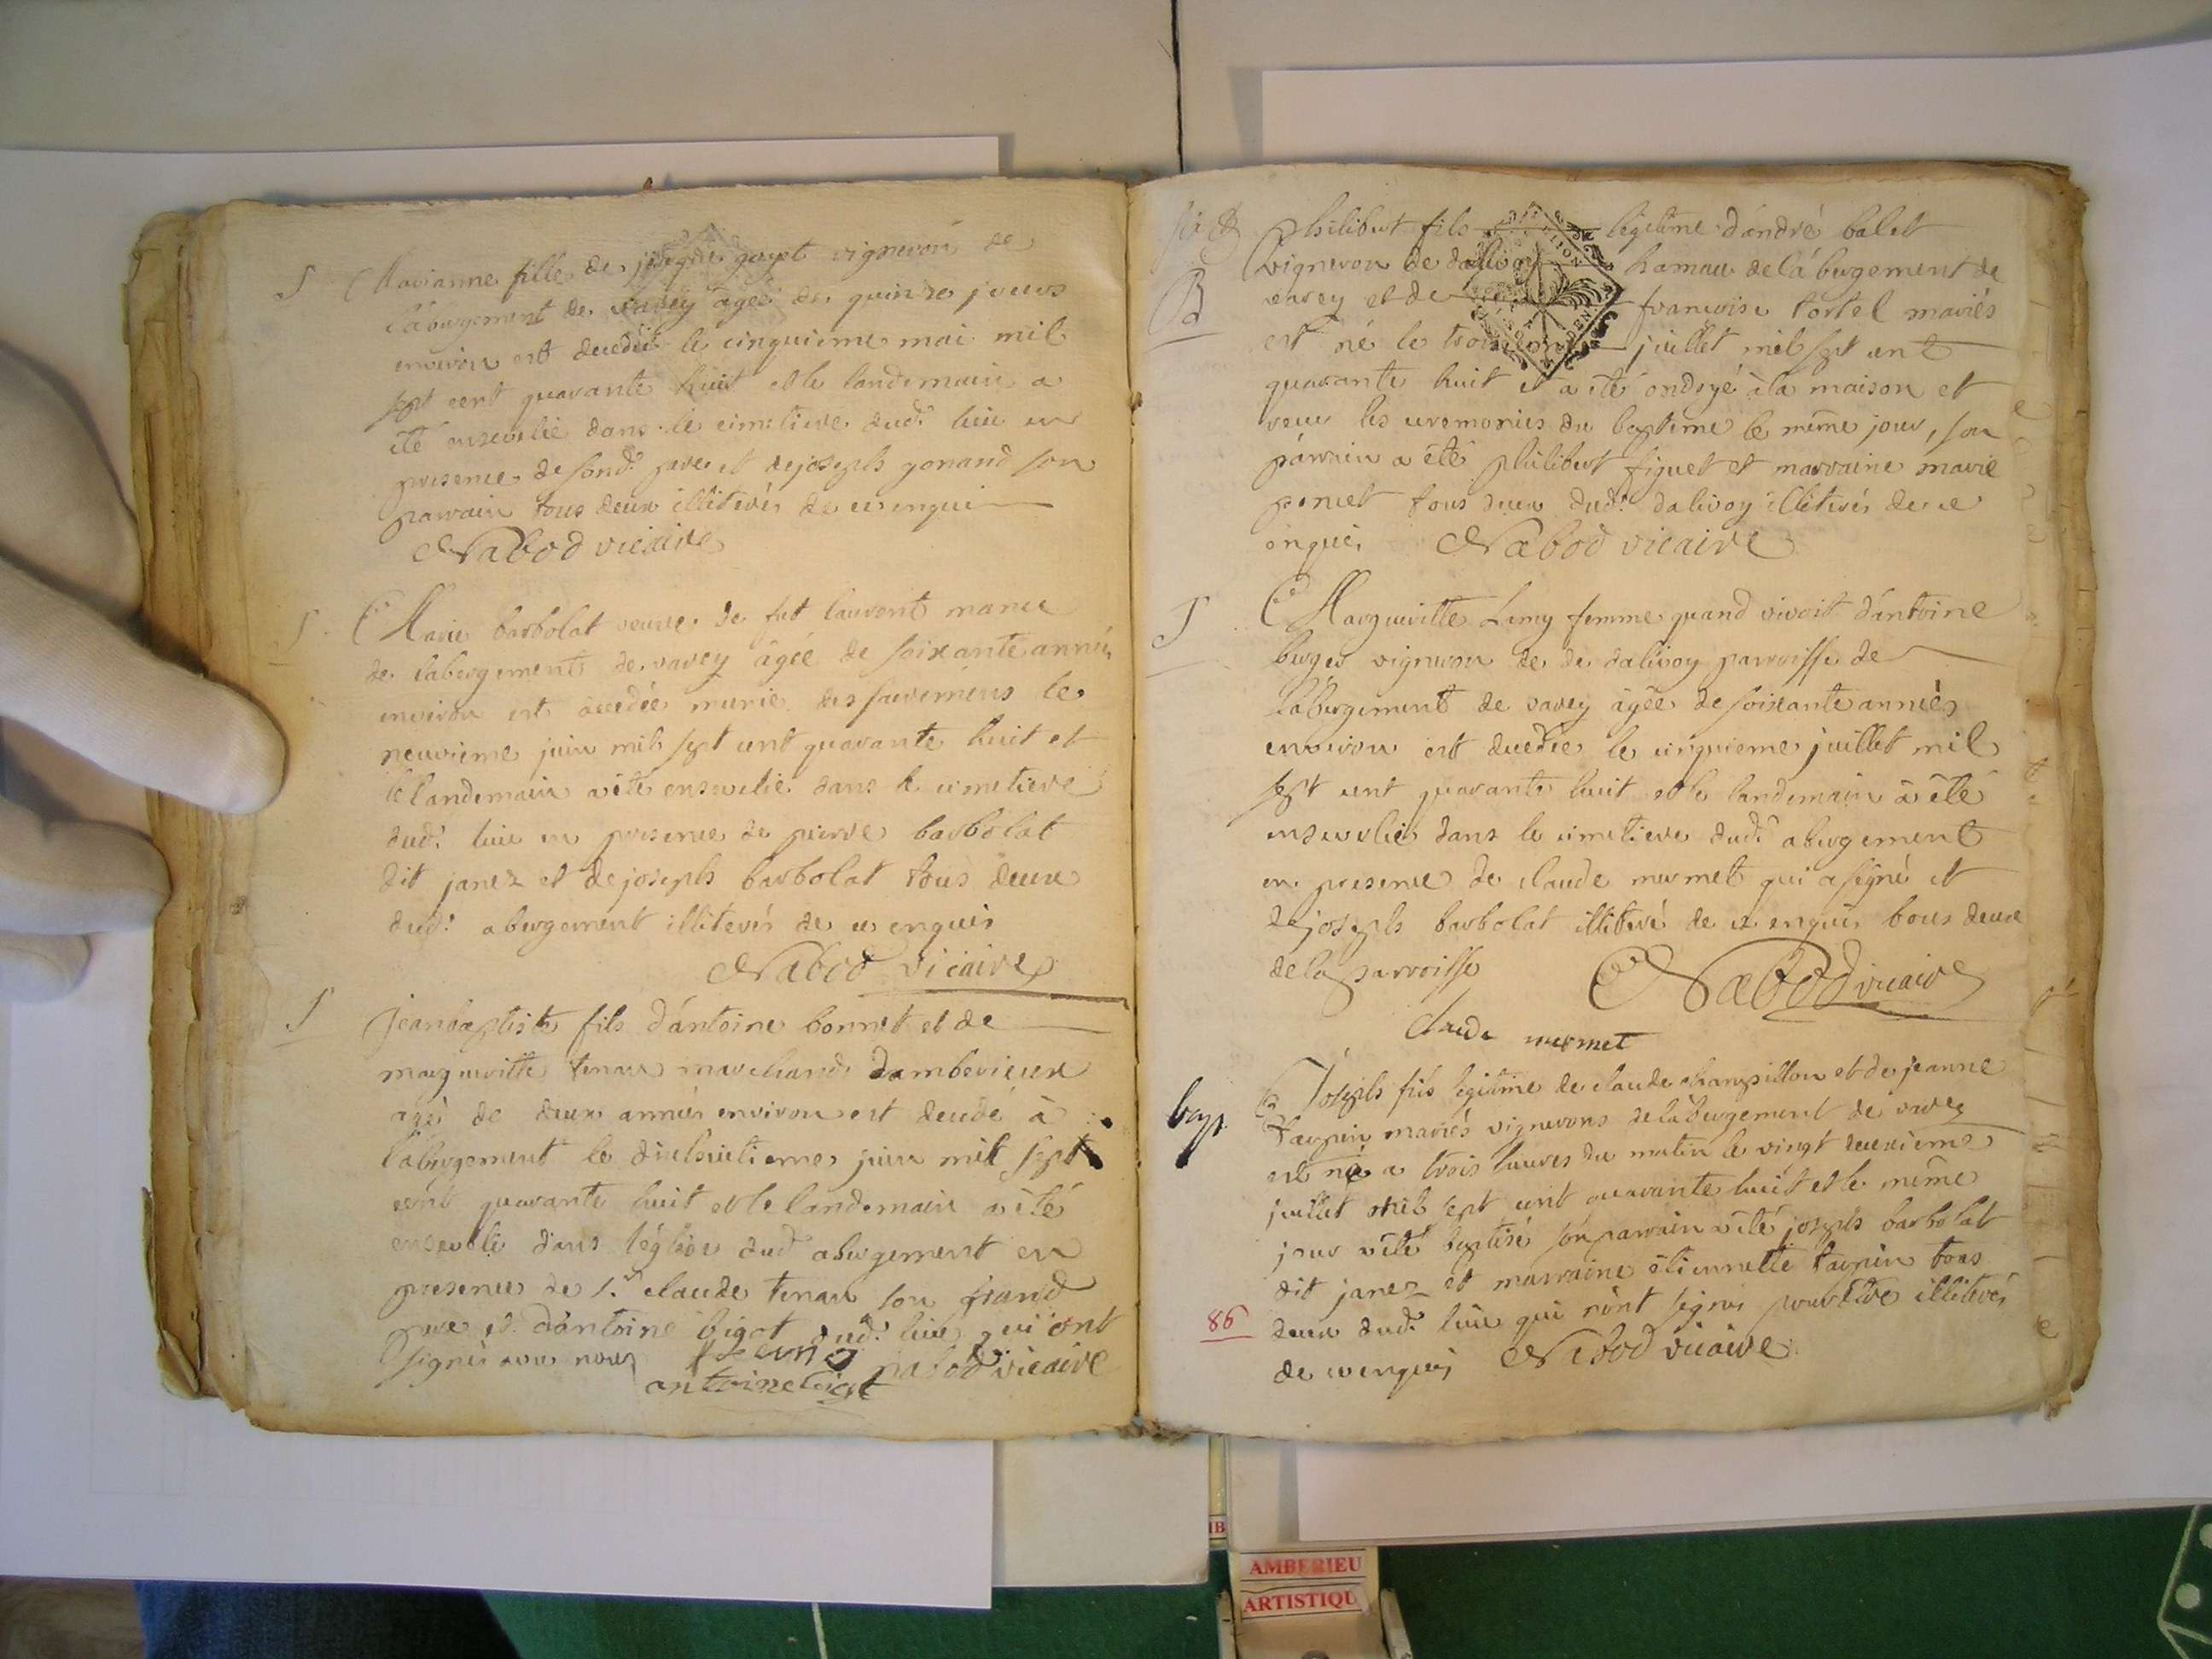 S
Marianne fille de joseph goyet vigneron de
l'abergement de varey agée de quinze jours
environ est decedée le cinquieme mai mil
sept cent quarante huit et le landemain a
été ensevelie dans le cimetiere dud: lieu en
presence de sond: pere et de joseph gonand son
parrain tous deux illiterés de ce enquis
Nabod vicaire
S
Marie barbolat veuve de fut laurent
de labergement de varey âgée de soixante années
environ est decedée munie des sacremens le
neuvieme juin mil sept cent quarante huit et
le landemain a été ensevelie dans le cimetiere
dud: lieu en presence de pierre barbolat
dit janez et de joseph barbolat tous deux
dud: abergement illiterés de ce enquis
Nabod vicaire
S
Jean baptiste fils d'antoine bonnet et de
margueritte tenan marchand damberieux
agé de deux années environ est decedé à
l'abergement le dixhuitieme juin mil sept
cent quarante huit et le landemain a été
enseveli dans l'église dud abergement en
presence de S.r claude tenan son grand
pere et d'antoine bigot dud: lieu qui ont
signés avec nous
nabod vicaire
antoine bigot
B
Philibert fils legitime d'andré balet
vigneron de dalivoy hamau de l'abergement de
varey et de francoise tortel mariés
est né le troisieme juillet mil sept cent
quarante huit et a été ondoyé à la maison et
receu les ceremonies du baptême le même jour, son
parrain a été philibert figuet et marraine marie
poncet tous deux dud: dalivoy illiterés de ce
enquis Nabod vicaire
S
Margueritte Lamy femme quand vivoit d'antoine
berger vigneron de de dalivoy parroisse de
l'abergement de varey âgée de soixante années
environ est decedée le cinquieme juillet mil
sept cent quarante huit et le landemain à été
ensevelie dans le cimetiere dud: abergement
en presence de claude mermet qui a signé et
de joseph barbolat illiteré de ce enquis tous deux
de la parroisse Nabod vicaire
claude mermet
bap.
Joseph fils legitime de claude champillon et de jeanne
tarpin mariés vignerons de l'abergement de varey
est né a trois heures du matin le vingt deuxieme
juillet mil sept cent quarante huit et le même
jour a été baptisé son parrain a été joseph barbolat
dit janez et marraine étiennette tarpin tous
deux dud: lieu qui n'ont signés pour être illiterés
86
de ce enquis Nabod vicaire
AMBERIEU
ARTISTIQU